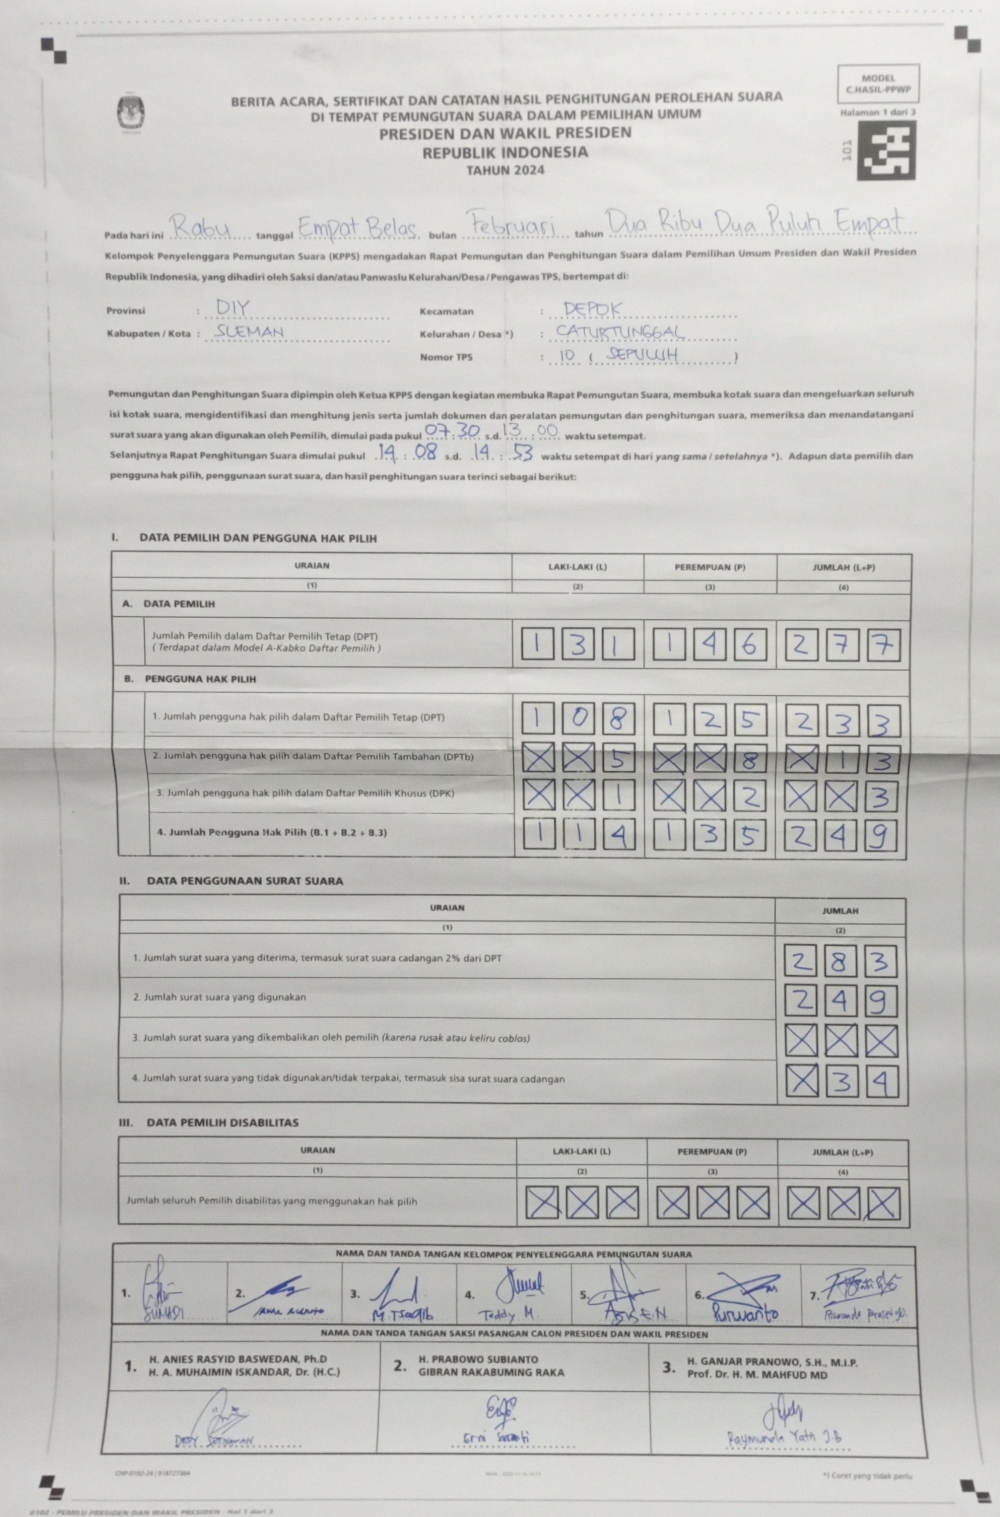 MODEL
C.HASIL-PPWP
Halaman 1 dari 3
101
BERITA ACARA, SERTIFIKAT DAN CATATAN HASIL PENGHITUNGAN PEROLEHAN SUARA
DI TEMPAT PEMUNGUTAN SUARA DALAM PEMILIHAN UMUM
PRESIDEN DAN WAKIL PRESIDEN
REPUBLIK INDONESIA
TAHUN 2024
Pada hari ini Rabu tanggal Empat Belas bulan Februari tahun Dua Ribu Dua Puluh Empat
Kelompok Penyelenggara Pemungutan Suara (KPPS) mengadakan Rapat Pemungutan dan Penghitungan Suara dalam Pemilihan Umum Presiden dan Wakil Presiden
Republik Indonesia, yang dihadiri oleh Saksi dan/atau Panwaslu Kelurahan/Desa/Pengawas TPS, bertempat di:
Provinsi : DIY Kecamatan : DEPOK
Kabupaten / Kota : SLEMAN Kelurahan / Desa *) : CATURTUNGGAL
Nomor TPS : 10 ( SEPULUH )
Pemungutan dan Penghitungan Suara dipimpin oleh Ketua KPPS dengan kegiatan membuka Rapat Pemungutan Suara, membuka kotak suara dan mengeluarkan seluruh
isi kotak suara, mengidentifikasi dan menghitung jenis serta jumlah dokumen dan peralatan pemungutan dan penghitungan suara, memeriksa dan menandatangani
surat suara yang akan digunakan oleh Pemilih, dimulai pada pukul 07:30 s.d. 13:00 waktu setempat.
Selanjutnya Rapat Penghitungan Suara dimulai pukul 14:08 s.d. 14:53 waktu setempat di hari yang sama / setelahnya *). Adapun data pemilih dan
pengguna hak pilih, penggunaan surat suara, dan hasil penghitungan suara terinci sebagai berikut:
I. DATA PEMILIH DAN PENGGUNA HAK PILIH
URAIAN LAKI-LAKI (L) PEREMPUAN (P) JUMLAH (L+P)
(1) (2) (3) (4)
A. DATA PEMILIH
Jumlah Pemilih dalam Daftar Pemilih Tetap (DPT) 1 3 1 1 4 6 2 7 7
( Terdapat dalam Model A-Kabko Daftar Pemilih )
B. PENGGUNA HAK PILIH
1. Jumlah pengguna hak pilih dalam Daftar Pemilih Tetap (DPT) 1 0 8 1 2 5 2 3 3
2. Jumlah pengguna hak pilih dalam Daftar Pemilih Tambahan (DPTb) X X 5 X X 8 X 1 3
3. Jumlah pengguna hak pilih dalam Daftar Pemilih Khusus (DPK) X X 1 X X 2 X X 3
4. Jumlah Pengguna Hak Pilih (B.1 + B.2 + B.3) 1 1 4 1 3 5 2 4 9
II. DATA PENGGUNAAN SURAT SUARA
URAIAN JUMLAH
(1) (2)
1. Jumlah surat suara yang diterima, termasuk surat suara cadangan 2% dari DPT 2 8 3
2. Jumlah surat suara yang digunakan 2 4 9
3. Jumlah surat suara yang dikembalikan oleh pemilih (karena rusak atau keliru coblos) X X X
4. Jumlah surat suara yang tidak digunakan/tidak terpakai, termasuk sisa surat suara cadangan X 3 4
III. DATA PEMILIH DISABILITAS
URAIAN LAKI-LAKI (L) PEREMPUAN (P) JUMLAH (L+P)
(1) (2) (3) (4)
Jumlah seluruh Pemilih disabilitas yang menggunakan hak pilih X X X X X X X X X
NAMA DAN TANDA TANGAN KELOMPOK PENYELENGGARA PEMUNGUTAN SUARA
1. 2. 3. 4. 5. 6. 7.
M. Tsaqib Teddy M Purwanto
NAMA DAN TANDA TANGAN SAKSI PASANGAN CALON PRESIDEN DAN WAKIL PRESIDEN
1. H. ANIES RASYID BASWEDAN, Ph.D
H. A. MUHAIMIN ISKANDAR, Dr. (H.C.)
2. H. PRABOWO SUBIANTO
GIBRAN RAKABUMING RAKA
3. H. GANJAR PRANOWO, S.H., M.I.P.
Prof. Dr. H. M. MAHFUD MD
Erni
*) Coret yang tidak perlu
0102 - PEMILU PRESIDEN DAN WAKIL PRESIDEN - Hal 1 dari 3